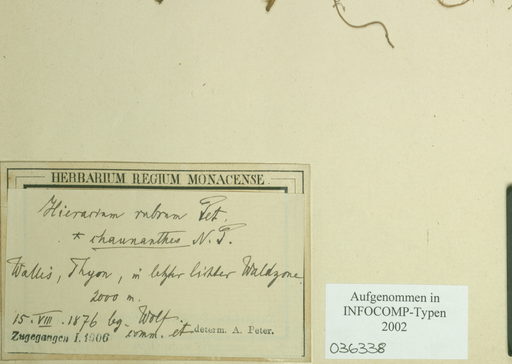 HERBARIUM REGIUM MONACENSE
Hieracium rubrum Pet.
* chaunanthes N. P.
Wallis, Thyon, in letzter lichter Waldzone
2000 m.
15. VIII. 1876 lg. Wolf.
Zugegangen I. 1906 comm. et determ. A. Peter.
Aufgenommen in
INFOCOMP-Typen
2002
036338